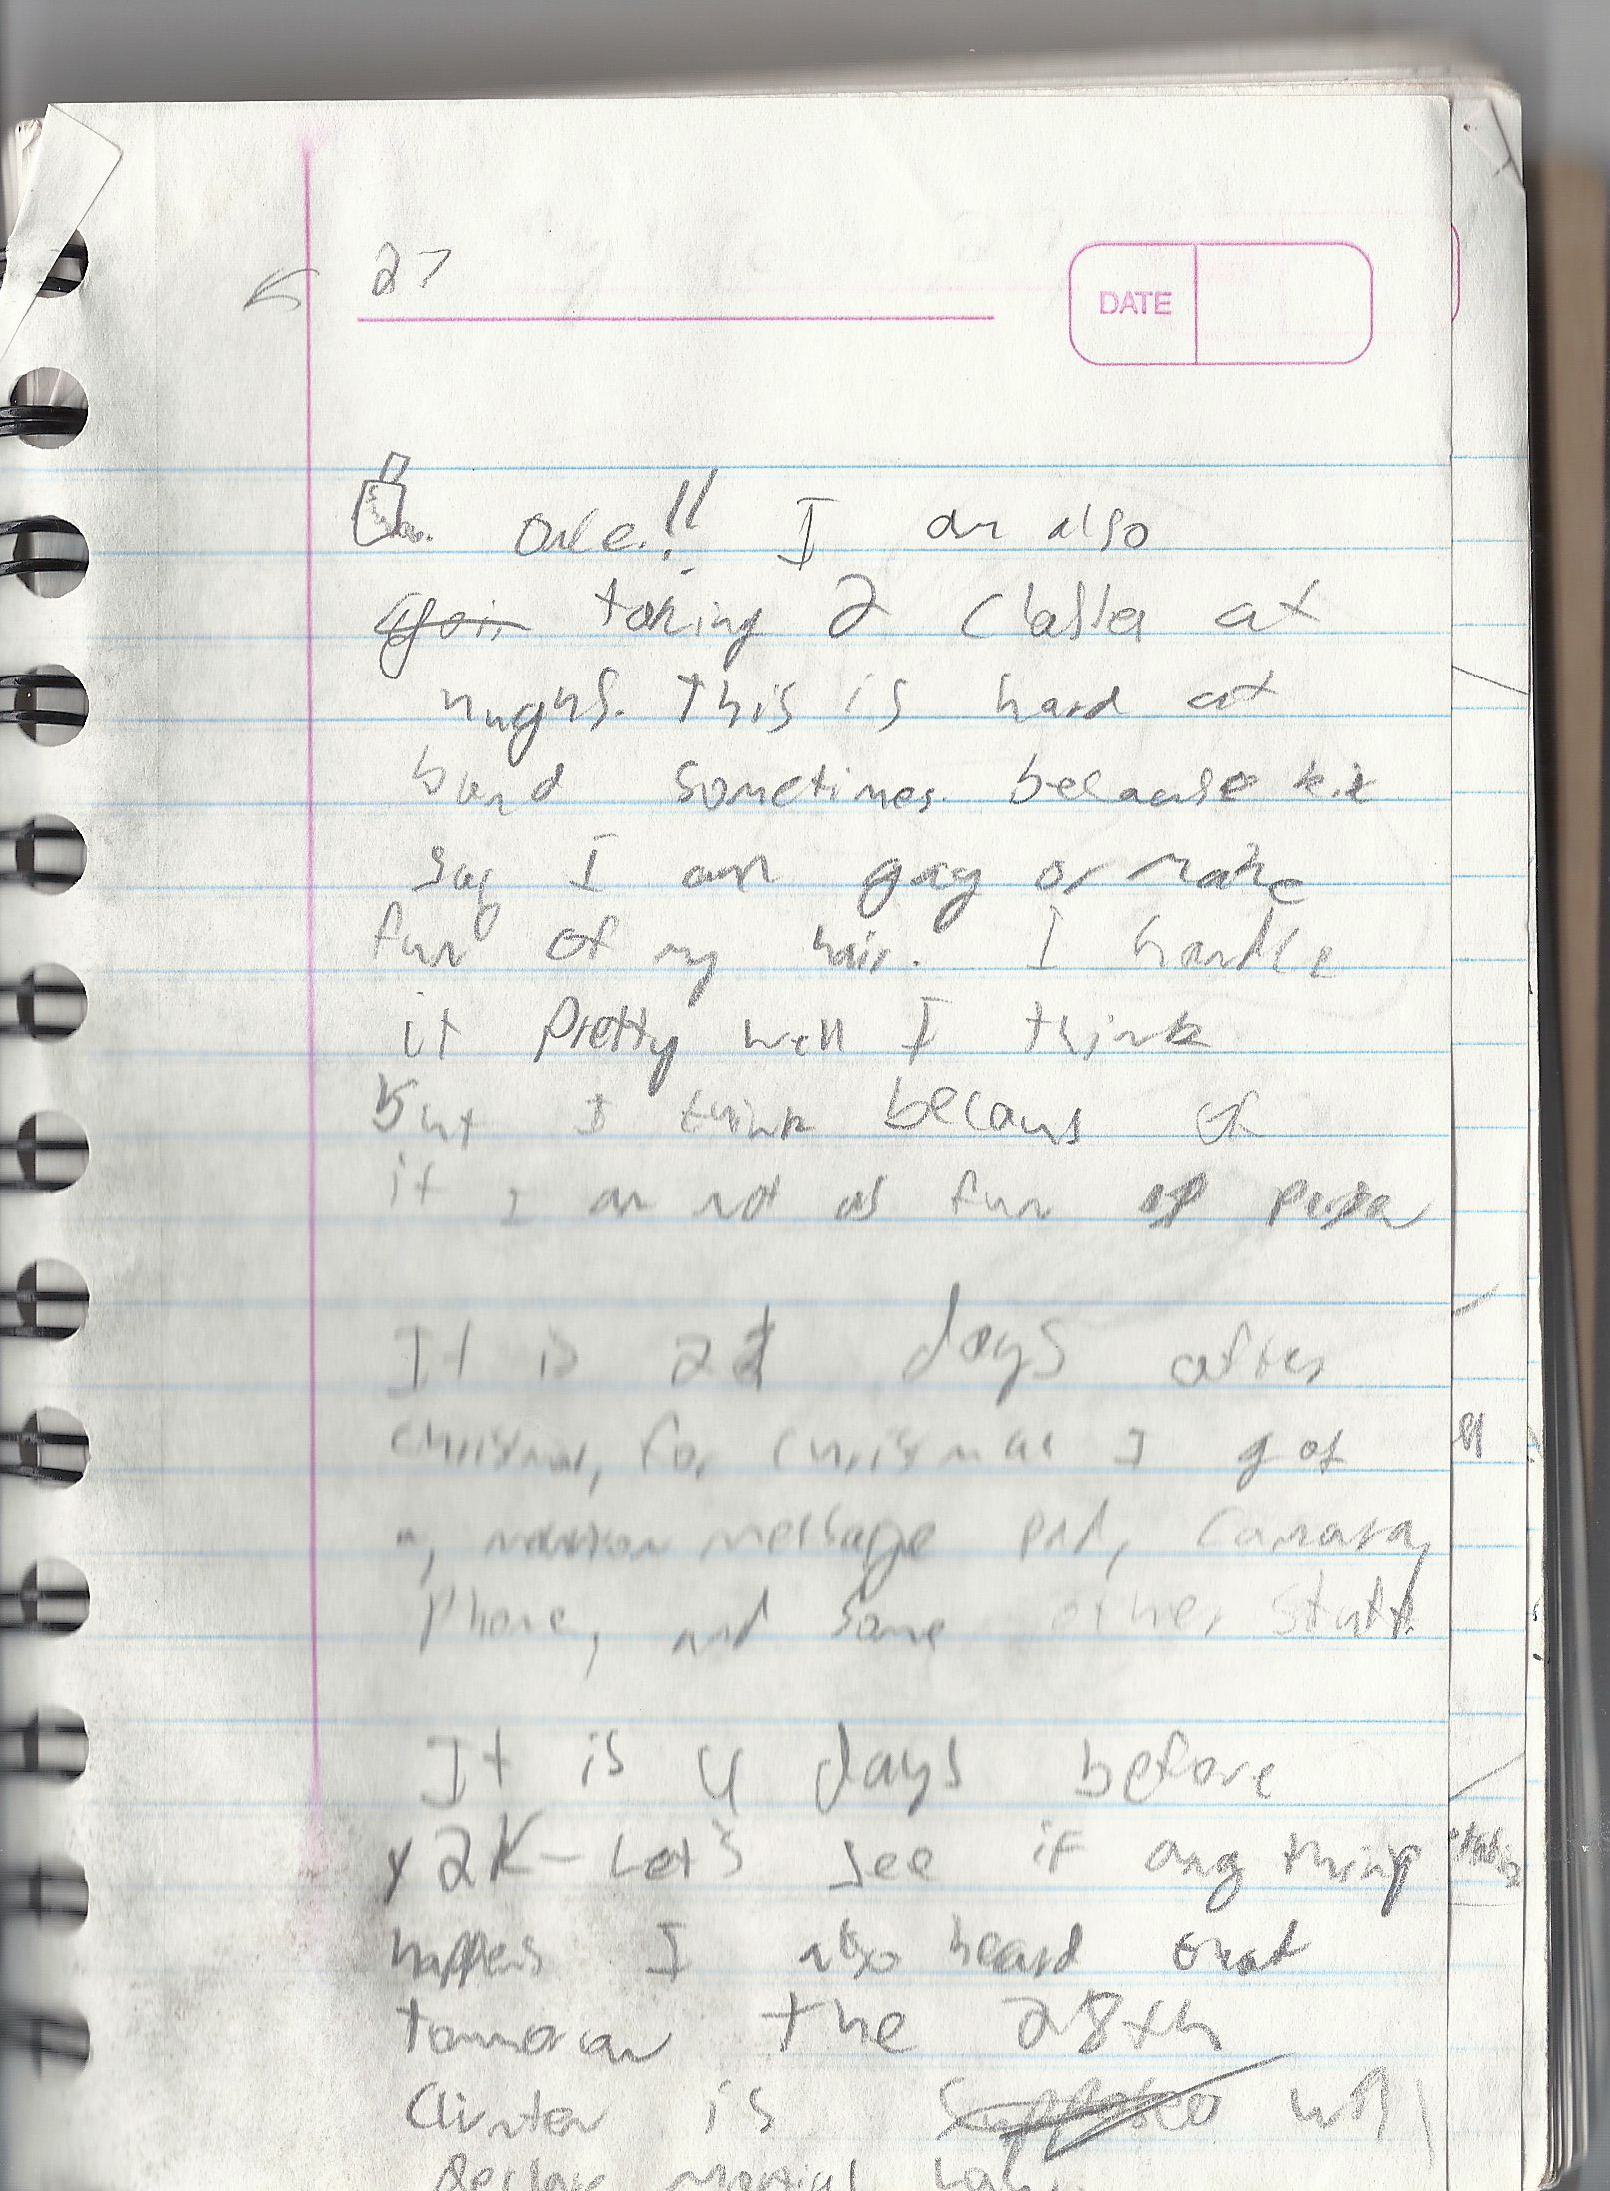 27
DATE
one!! I am also
goin taking 2 classes at
This is hard at
band sometimes. because
say I am gay or make
fun of my hair. I handle
it Pretty well I think
But I think becaus of
it I am not as fun
It is 2 days after
christmas, for christmas I got
a, message Pad, Camara,
Phone, and some other stuff.
It is 4 days before
Y2K - Let's see if any thing
happens I also heard that
the 28th
is supposed will
declare marial law